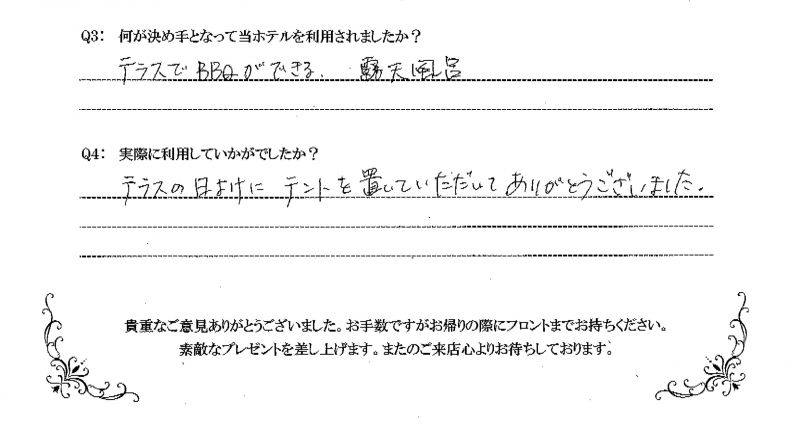 Q3: 何が決め手となって当ホテルを利用されましたか？
テラスでBBQができる. 露天風呂
Q4: 実際に利用していかがでしたか？
テラスの日よけに テントを置いていただいて ありがとうございました.
貴重なご意見ありがとうございました。お手数ですがお帰りの際にフロントまでお持ちください。
素敵なプレゼントを差し上げます。またのご来店心よりお待ちしております。